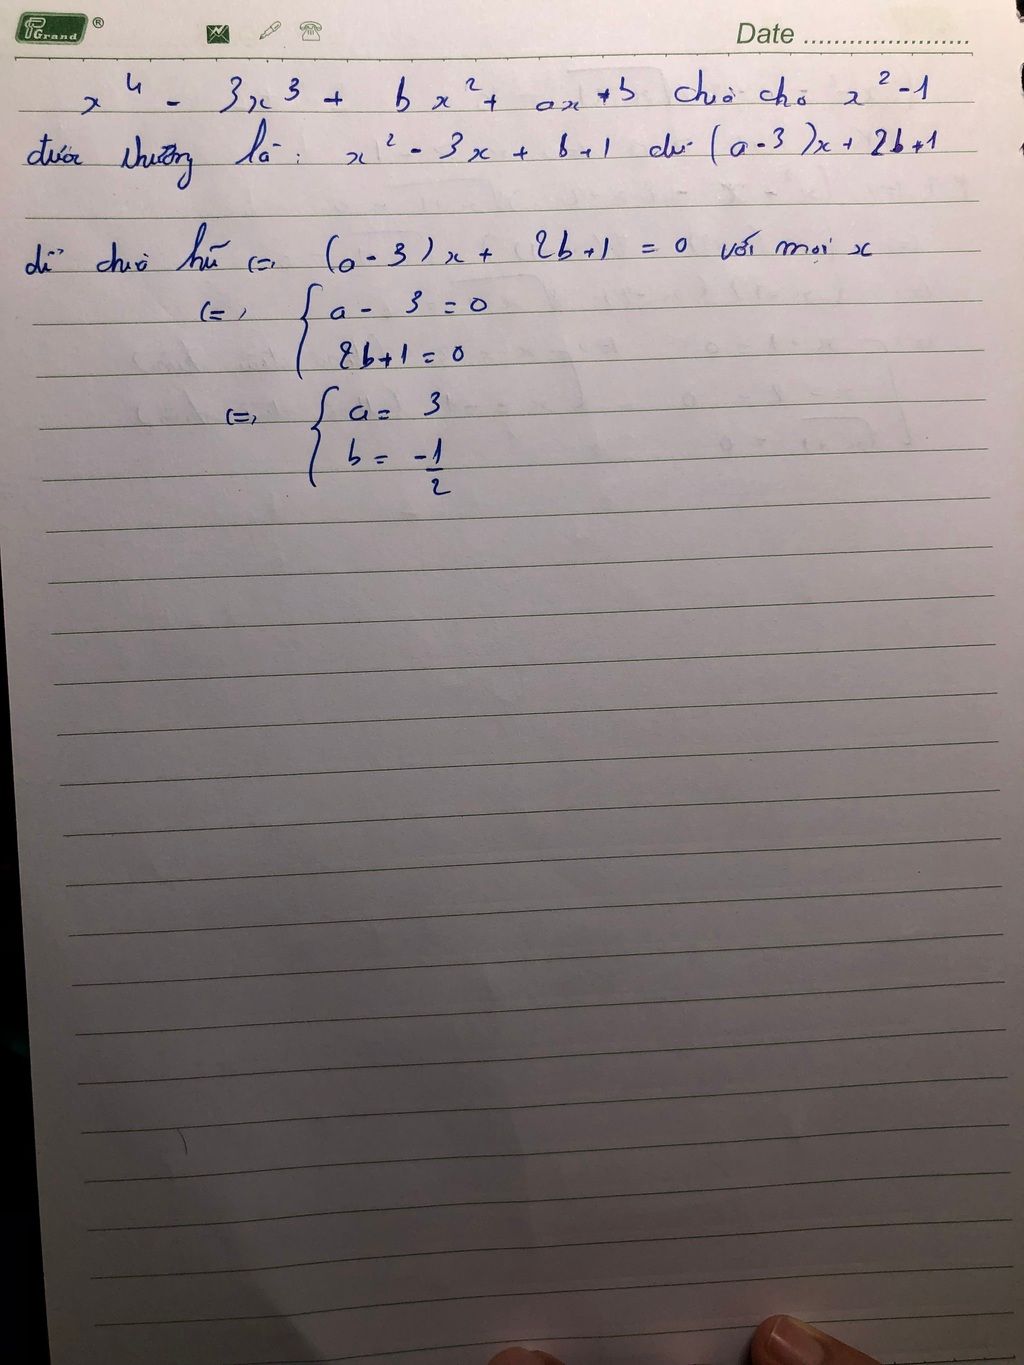 PGrand ® Date ........................
x⁴ - 3x³ + bx² + ax + b chia cho x² - 1
được thương là: x² - 3x + b + 1 dư (a - 3)x + 2b + 1
để chia hết (=) (a - 3)x + 2b + 1 = 0 với mọi x
(=) { a - 3 = 0
2b + 1 = 0
(=) { a = 3
b = -1/2